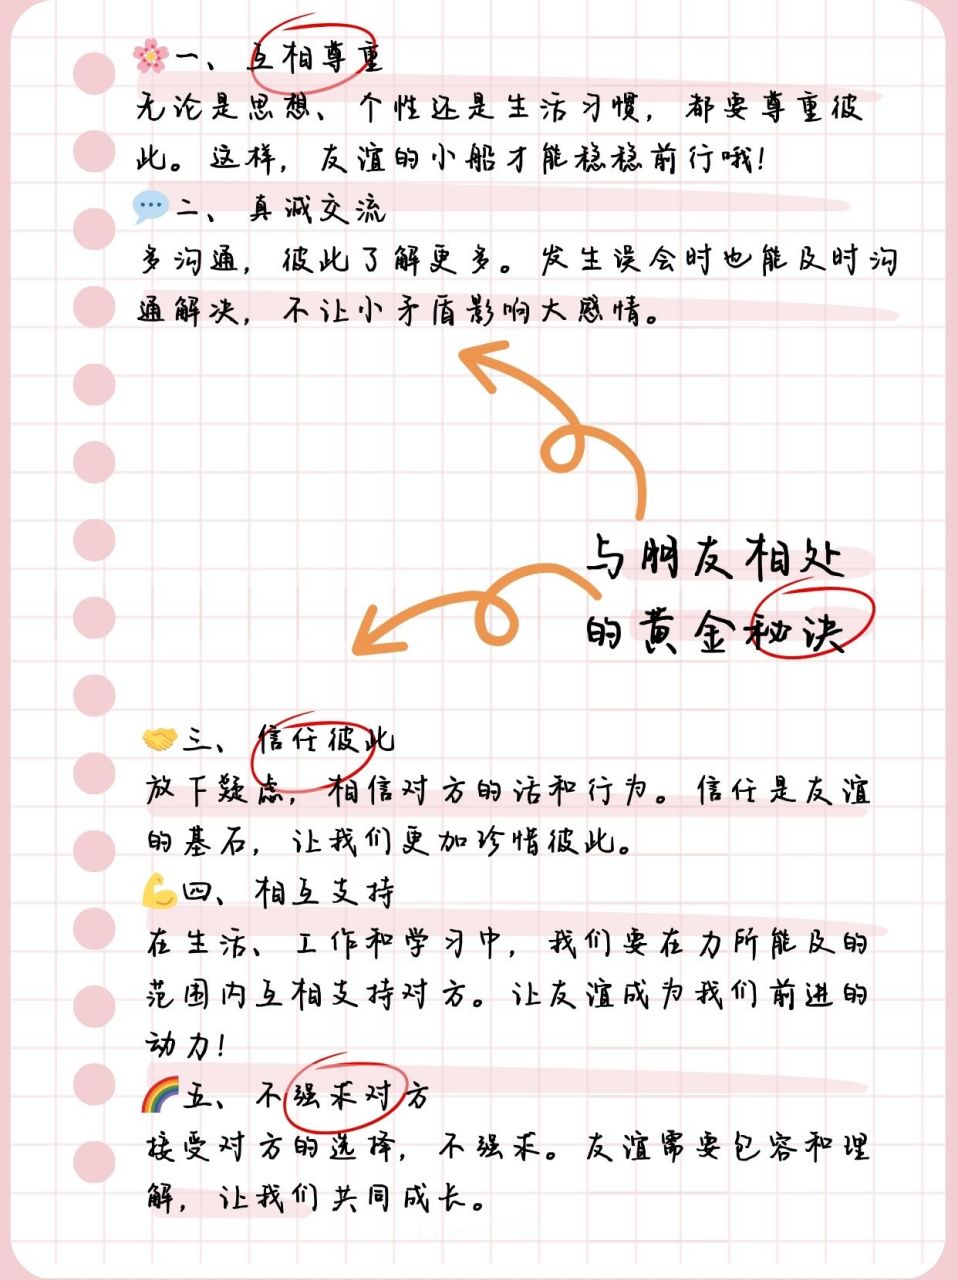 🌸一、互相尊重
无论是思想、个性还是生活习惯，都要尊重彼
此。这样，友谊的小船才能稳稳前行哦！
💬二、真诚交流
多沟通，彼此了解更多。发生误会时也能及时沟
通解决，不让小矛盾影响大感情。
与朋友相处
的黄金秘诀
🤝三、信任彼此
放下疑虑，相信对方的话和行为。信任是友谊
的基石，让我们更加珍惜彼此。
💪四、相互支持
在生活、工作和学习中，我们要在力所能及的
范围内互相支持对方。让友谊成为我们前进的
动力！
🌈五、不强求对方
接受对方的选择，不强求。友谊需要包容和理
解，让我们共同成长。